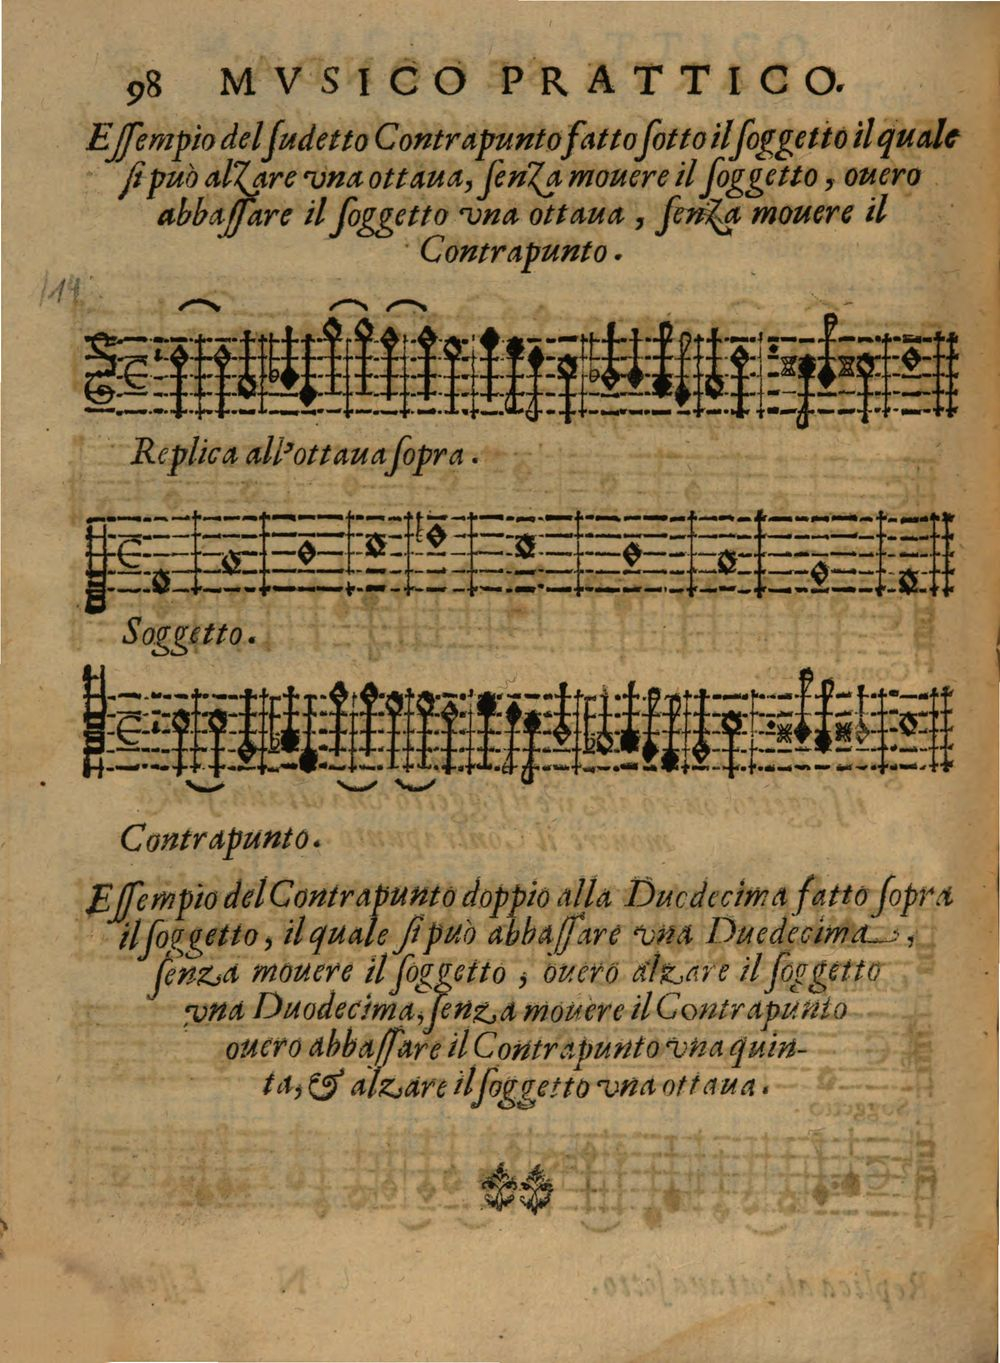 98 MVSICO PRATTICO.
Eſſempio del ſudetto Contrapunto fatto ſotto il ſoggetto il quale
ſi può alzare vna ottaua, ſenza mouere il ſoggetto, ouero
abbaſſare il ſoggetto vna ottaua, ſenza mouere il
Contrapunto.
114
Replica all'ottaua ſopra.
Soggetto.
Contrapunto.
Eſſempio del Contrapunto doppio alla Ducdecima fatto ſopra
il ſoggetto, il quale ſi può abbaſſare vna Duedecima,
ſenza mouere il ſoggetto, ouero alzare il ſoggetto
vna Duodecima, ſenza mouere il Contrapunto
ouero abbaſſare il Contrapunto vna quin-
ta, & alzare il ſoggetto vna ottaua.